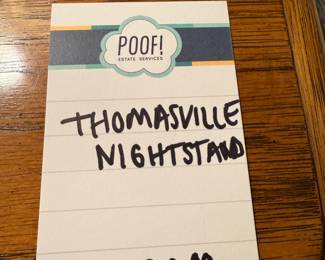 POOF!
ESTATE SERVICES
THOMASVILLE
NIGHTSTAND